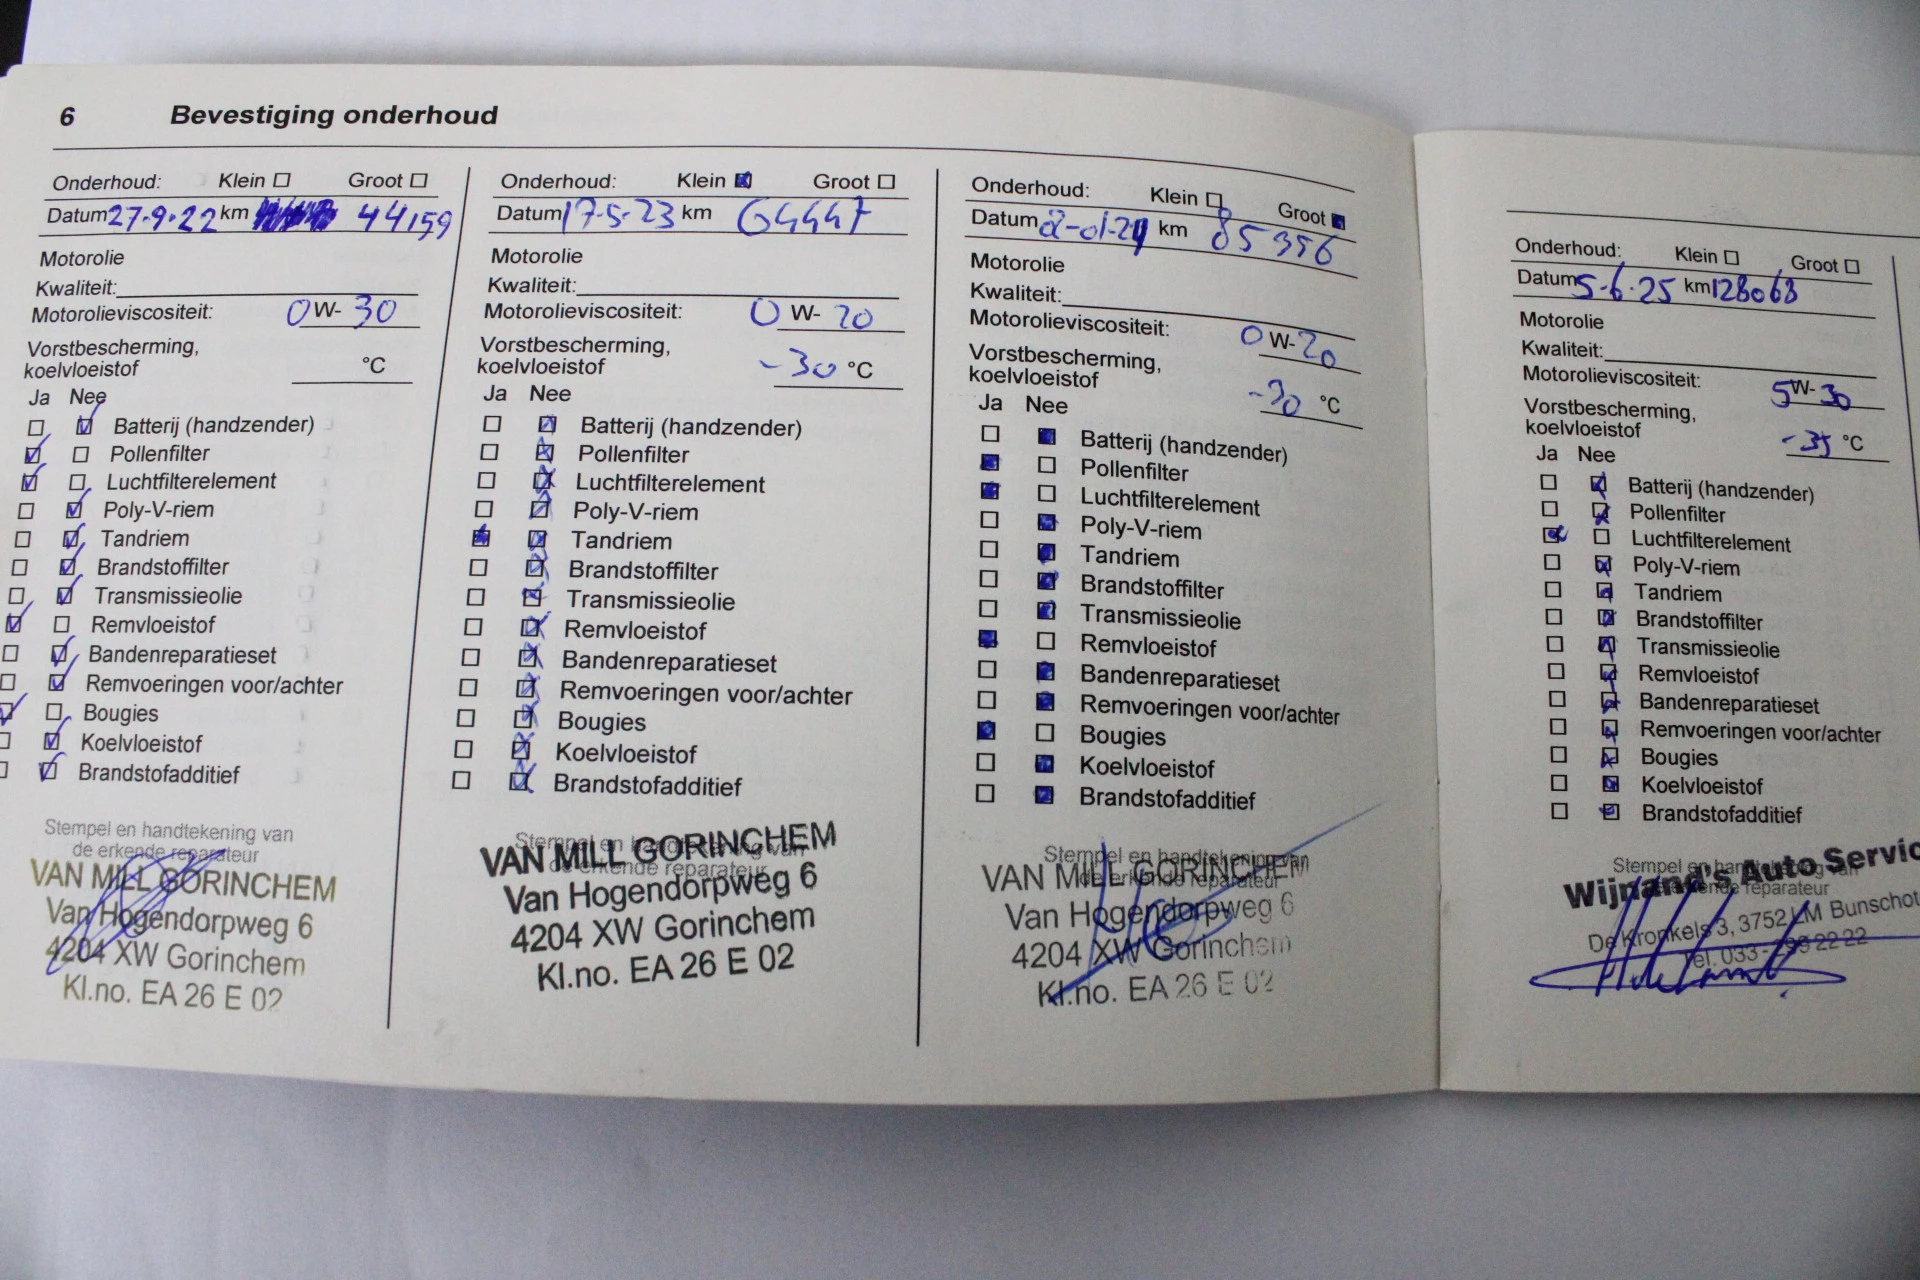 6 Bevestiging onderhoud
Onderhoud: Klein Groot
Datum 27-9-22 km 44159
Motorolie
Kwaliteit:
Motorolieviscositeit: 0 W- 30
Vorstbescherming,
koelvloeistof °C
Ja Nee
Batterij (handzender)
Pollenfilter
Luchtfilterelement
Poly-V-riem
Tandriem
Brandstoffilter
Transmissieolie
Remvloeistof
Bandenreparatieset
Remvoeringen voor/achter
Bougies
Koelvloeistof
Brandstofadditief
Stempel en handtekening van
de erkende reparateur
VAN MILL GORINCHEM
Van Hogendorpweg 6
4204 XW Gorinchem
Kl.no. EA 26 E 02
Onderhoud: Klein Groot
Datum 17-5-23 km 64447
Motorolie
Kwaliteit:
Motorolieviscositeit: 0 W- 20
Vorstbescherming,
koelvloeistof -30 °C
Ja Nee
Batterij (handzender)
Pollenfilter
Luchtfilterelement
Poly-V-riem
Tandriem
Brandstoffilter
Transmissieolie
Remvloeistof
Bandenreparatieset
Remvoeringen voor/achter
Bougies
Koelvloeistof
Brandstofadditief
Stempel en handtekening van
de erkende reparateur
VAN MILL GORINCHEM
Van Hogendorpweg 6
4204 XW Gorinchem
Kl.no. EA 26 E 02
Onderhoud: Klein Groot
Datum km
Motorolie
Kwaliteit:
Motorolieviscositeit: 0 W- 20
Vorstbescherming,
koelvloeistof -30 °C
Ja Nee
Batterij (handzender)
Pollenfilter
Luchtfilterelement
Poly-V-riem
Tandriem
Brandstoffilter
Transmissieolie
Remvloeistof
Bandenreparatieset
Remvoeringen voor/achter
Bougies
Koelvloeistof
Brandstofadditief
Stempel en handtekening van
de erkende reparateur
VAN MILL GORINCHEM
Van Hogendorpweg 6
4204 XW Gorinchem
Kl.no. EA 26 E 02
Onderhoud: Klein Groot
Datum 5-6-25 km 128068
Motorolie
Kwaliteit:
Motorolieviscositeit: 5 W- 30
Vorstbescherming,
koelvloeistof -35 °C
Ja Nee
Batterij (handzender)
Pollenfilter
Luchtfilterelement
Poly-V-riem
Tandriem
Brandstoffilter
Transmissieolie
Remvloeistof
Bandenreparatieset
Remvoeringen voor/achter
Bougies
Koelvloeistof
Brandstofadditief
Stempel en handtekening van
de erkende reparateur
Wijnand's Auto Servic
De Kronkels 3, 3752 LM Bunschot
Tel. 033-298 22 22